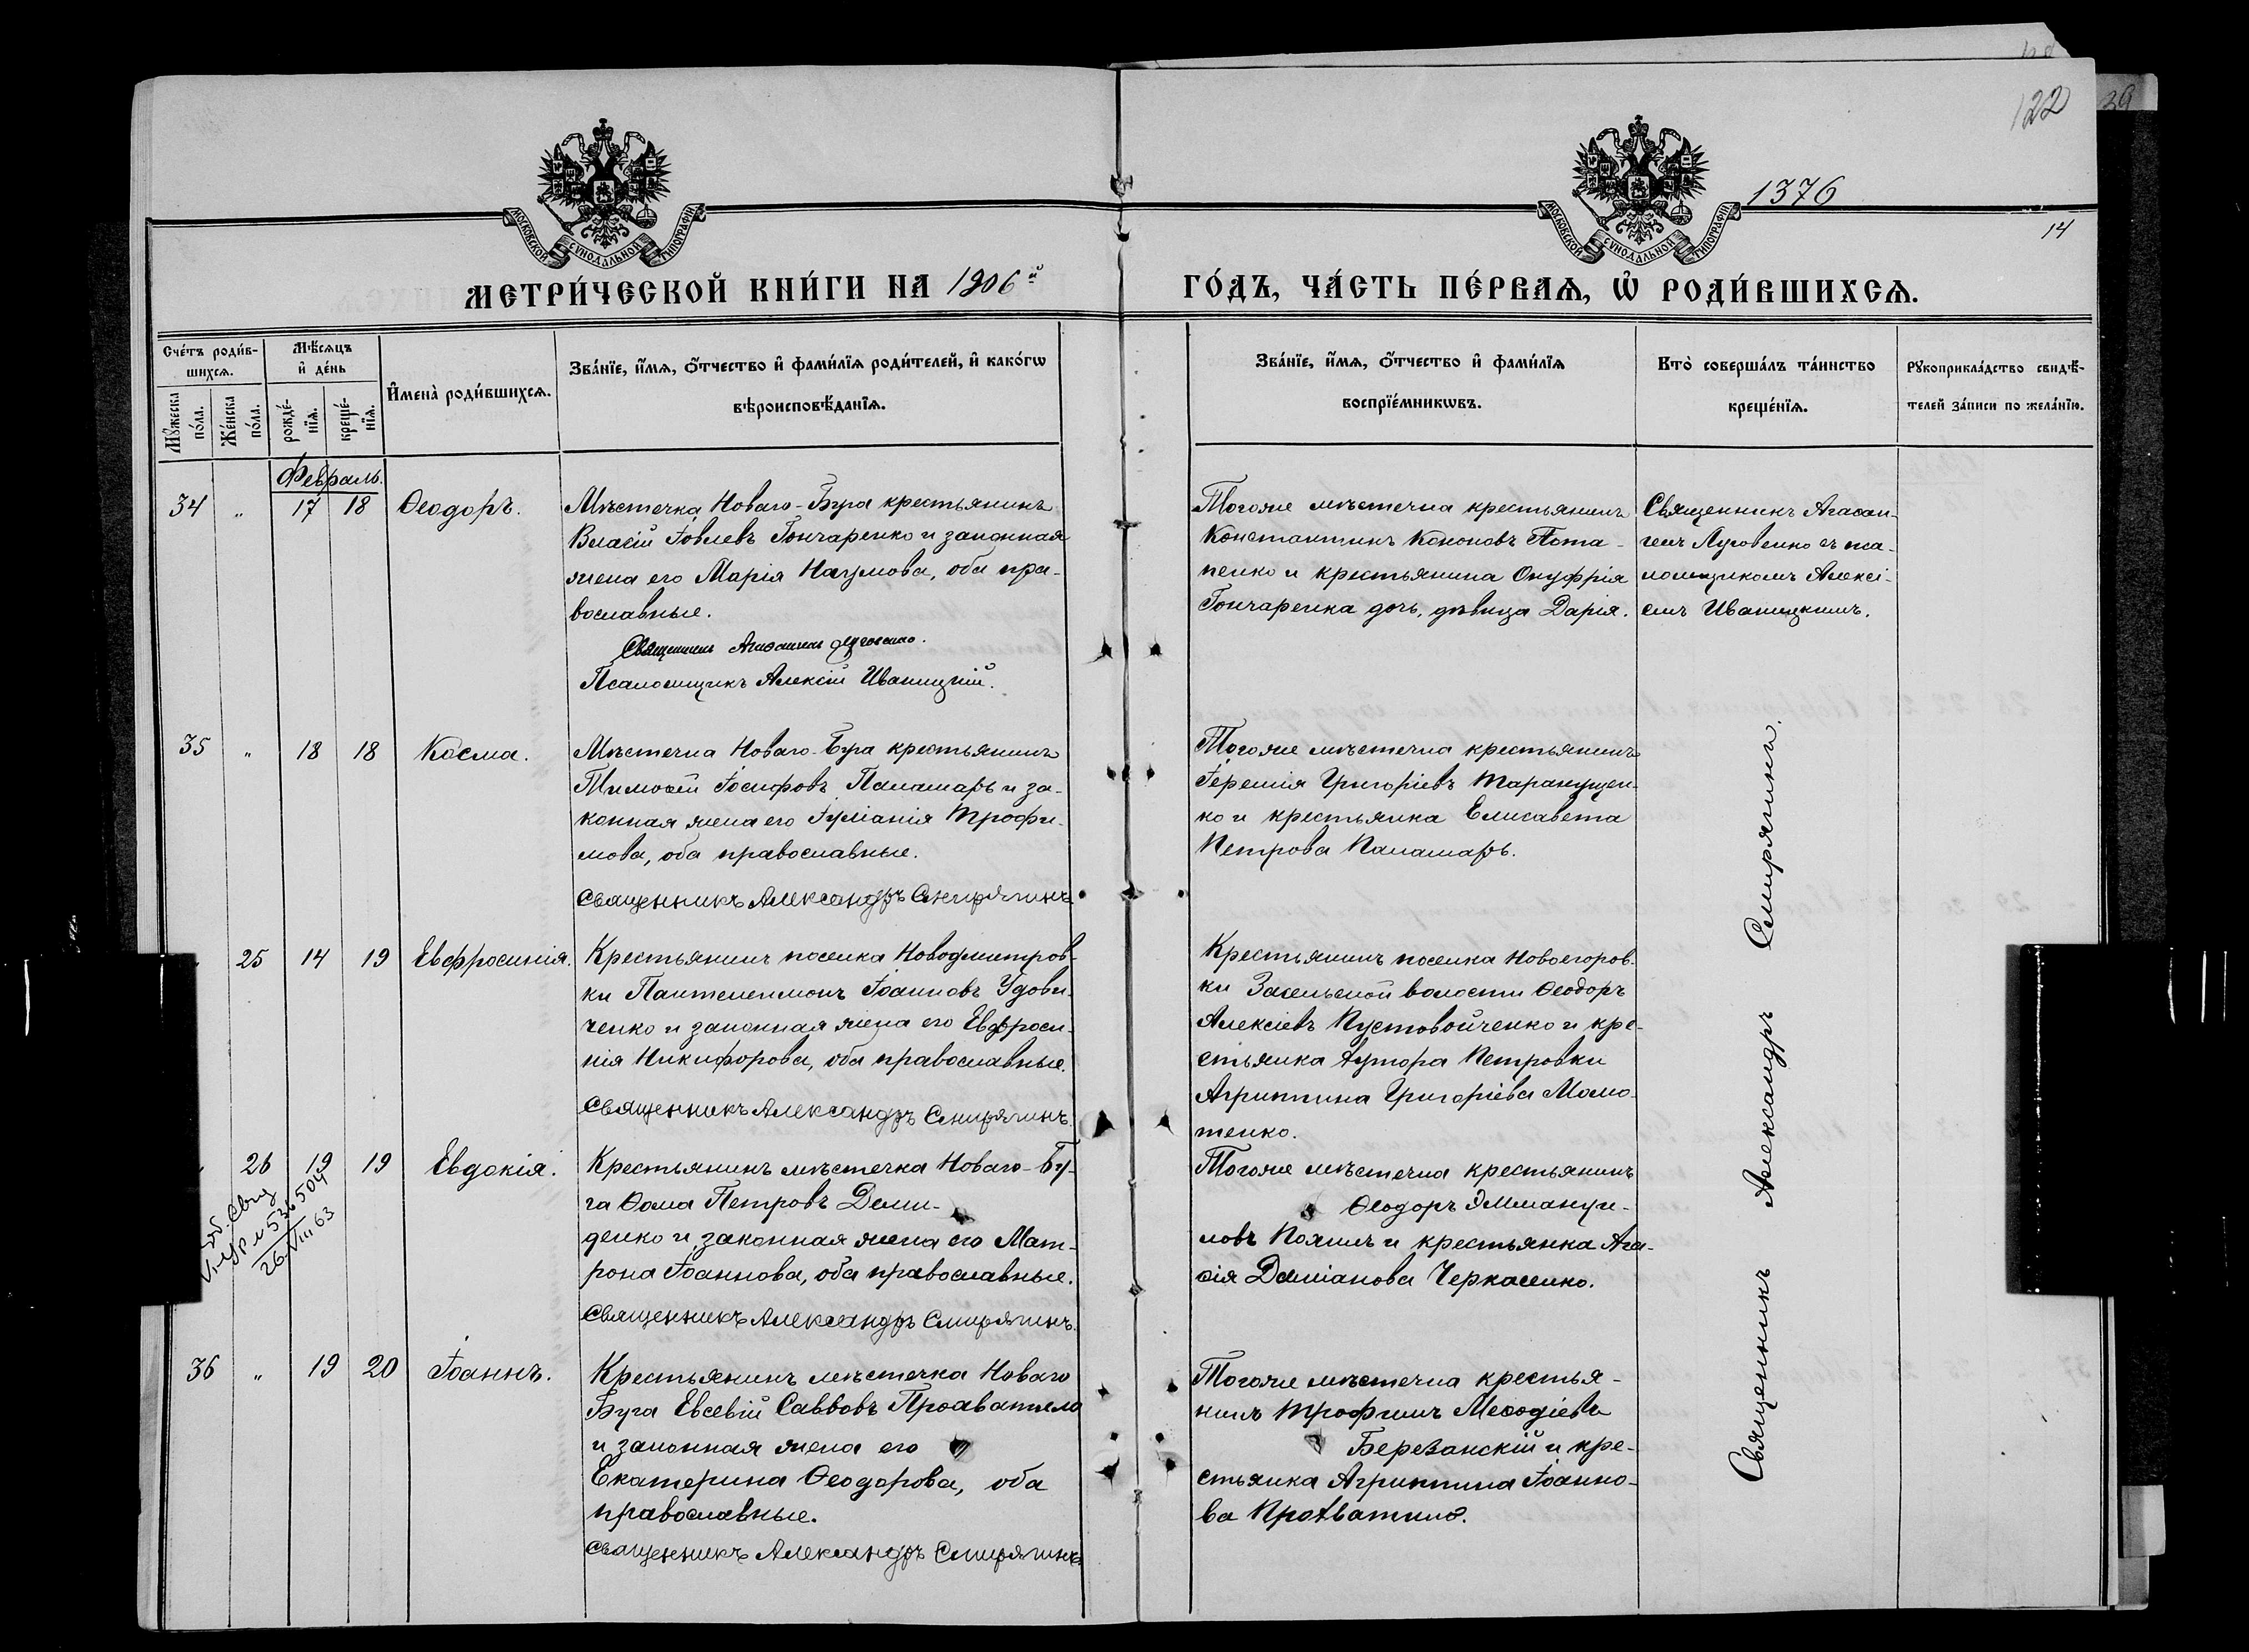 122
39
1376
14
МОСКОВСКОЙ СѴНОДАЛЬНОЙ ТИПОГРАФІИ
МОСКОВСКОЙ СѴНОДАЛЬНОЙ ТИПОГРАФІИ
МЕТРИ́ЧЕСКОЙ КНИ́ГИ НА 1906й
ГО́ДЪ, ЧА́СТЬ ПЕ́РВАѦ, Ѽ РОДИ́ВШИХСѦ.
Сче́тъ роди́в-
шихсѧ.
Мꙋ́жеска
по́ла.
Же́нска
по́ла.
Мѣ́сѧцъ
и҆ де́нь
рожде́-
нїѧ.
креще́-
нїѧ.
И҆мена̀ роди́вшихсѧ.
Зва́нїе, и҆́мѧ, ѻ҆́тчество и҆ фами́лїѧ роди́телей, и҆ како́гѡ
вѣроисповѣ́данїѧ.
Зва́нїе, и҆́мѧ, ѻ҆́тчество и҆ фами́лїѧ
воспрїе́мникѡвъ.
Кто̀ соверша́лъ та́инство
креще́нїѧ.
Рꙋкоприкла́дство свидѣ́-
телей за́писи по жела́нїю.
Февраль.
34 " 17 18 Ѳеодоръ.
Мѣстечка Новаго-Буга крестьянинъ
Власій Іовлевъ Гончаренко и законная
жена его Марія Наумова, оба пра-
вославные.
Священникъ Агаѳангелъ Луговенко.
Псаломщикъ Алексій Иваницкій.
Тогоже мѣстечка крестьянинъ
Константинъ Кононовъ Пота-
пенко и крестьянина Онуфрія
Гончаренка дочь, дѣвица Дарія.
Священникъ Агаѳан-
гелъ Луговенко съ пса-
ломщикомъ Алексі-
емъ Иваницкимъ.
35 " 18 18 Косма.
Мѣстечка Новаго-Буга крестьянинъ
Тимоѳей Іосифовъ Паламарь и за-
конная жена его Іуліанія Трофи-
мова, оба православные.
Священникъ Александръ Смирягинъ.
Тогоже мѣстечка крестьянинъ
Іеремія Григоріевъ Таранущен-
ко и крестьянка Елисавета
Петрова Паламарь.
25 14 19 Евфросинія.
Крестьянинъ поселка Новодмитров-
ки Пантелеимонъ Іоанновъ Удови-
ченко и законная жена его Евфроси-
нія Никифорова, оба православные.
Священникъ Александръ Смирягинъ.
Крестьянинъ поселка Новоегоров-
ки Засельской волости Ѳеодоръ
Алексіевъ Пустовойченко и кре-
стьянка хутора Петровки
Агриппина Григоріева Момо-
тенко.
26 19 19 Евдокія.
Крестьянинъ мѣстечка Новаго-Бу-
га Ѳома Петровъ Деми-
денко и законная жена его Мат-
рона Іоаннова, оба православные.
Священникъ Александръ Смирягинъ.
Тогоже мѣстечка крестьянинъ
Ѳеодоръ Эммануи-
ловъ Пояшъ и крестьянка Ага-
ѳія Даміанова Черкасенко.
V-УР № 536504
26/VIII 63
36 " 19 20 Іоаннъ.
Крестьянинъ мѣстечка Новаго
Буга Евсевій Саввовъ Проаватило
и законная жена его
Екатерина Ѳеодорова, оба
православные.
Священникъ Александръ Смирягинъ.
Тогоже мѣстечка крестья-
нинъ Трофимъ Меѳодіевъ
Березанскій и кре-
стьянка Агриппина Іоанно-
ва
Священникъ Александръ Смирягинъ.